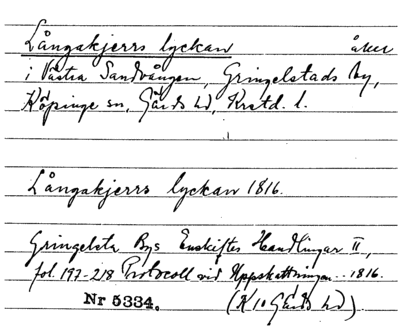 Långakjerrs lyckan åker
i Västra Sandvången, Gringelstads by,
Köpinge sn, Gärds hd, Krstd. l.
Långakjerrs lyckan 1816.
Gringelsta Bys Enskiftes Handlingar II,
fol. 197-218 Protocoll vid Uppskattningen.. 1816.
Nr 5334. (K 10 Gärds hd).